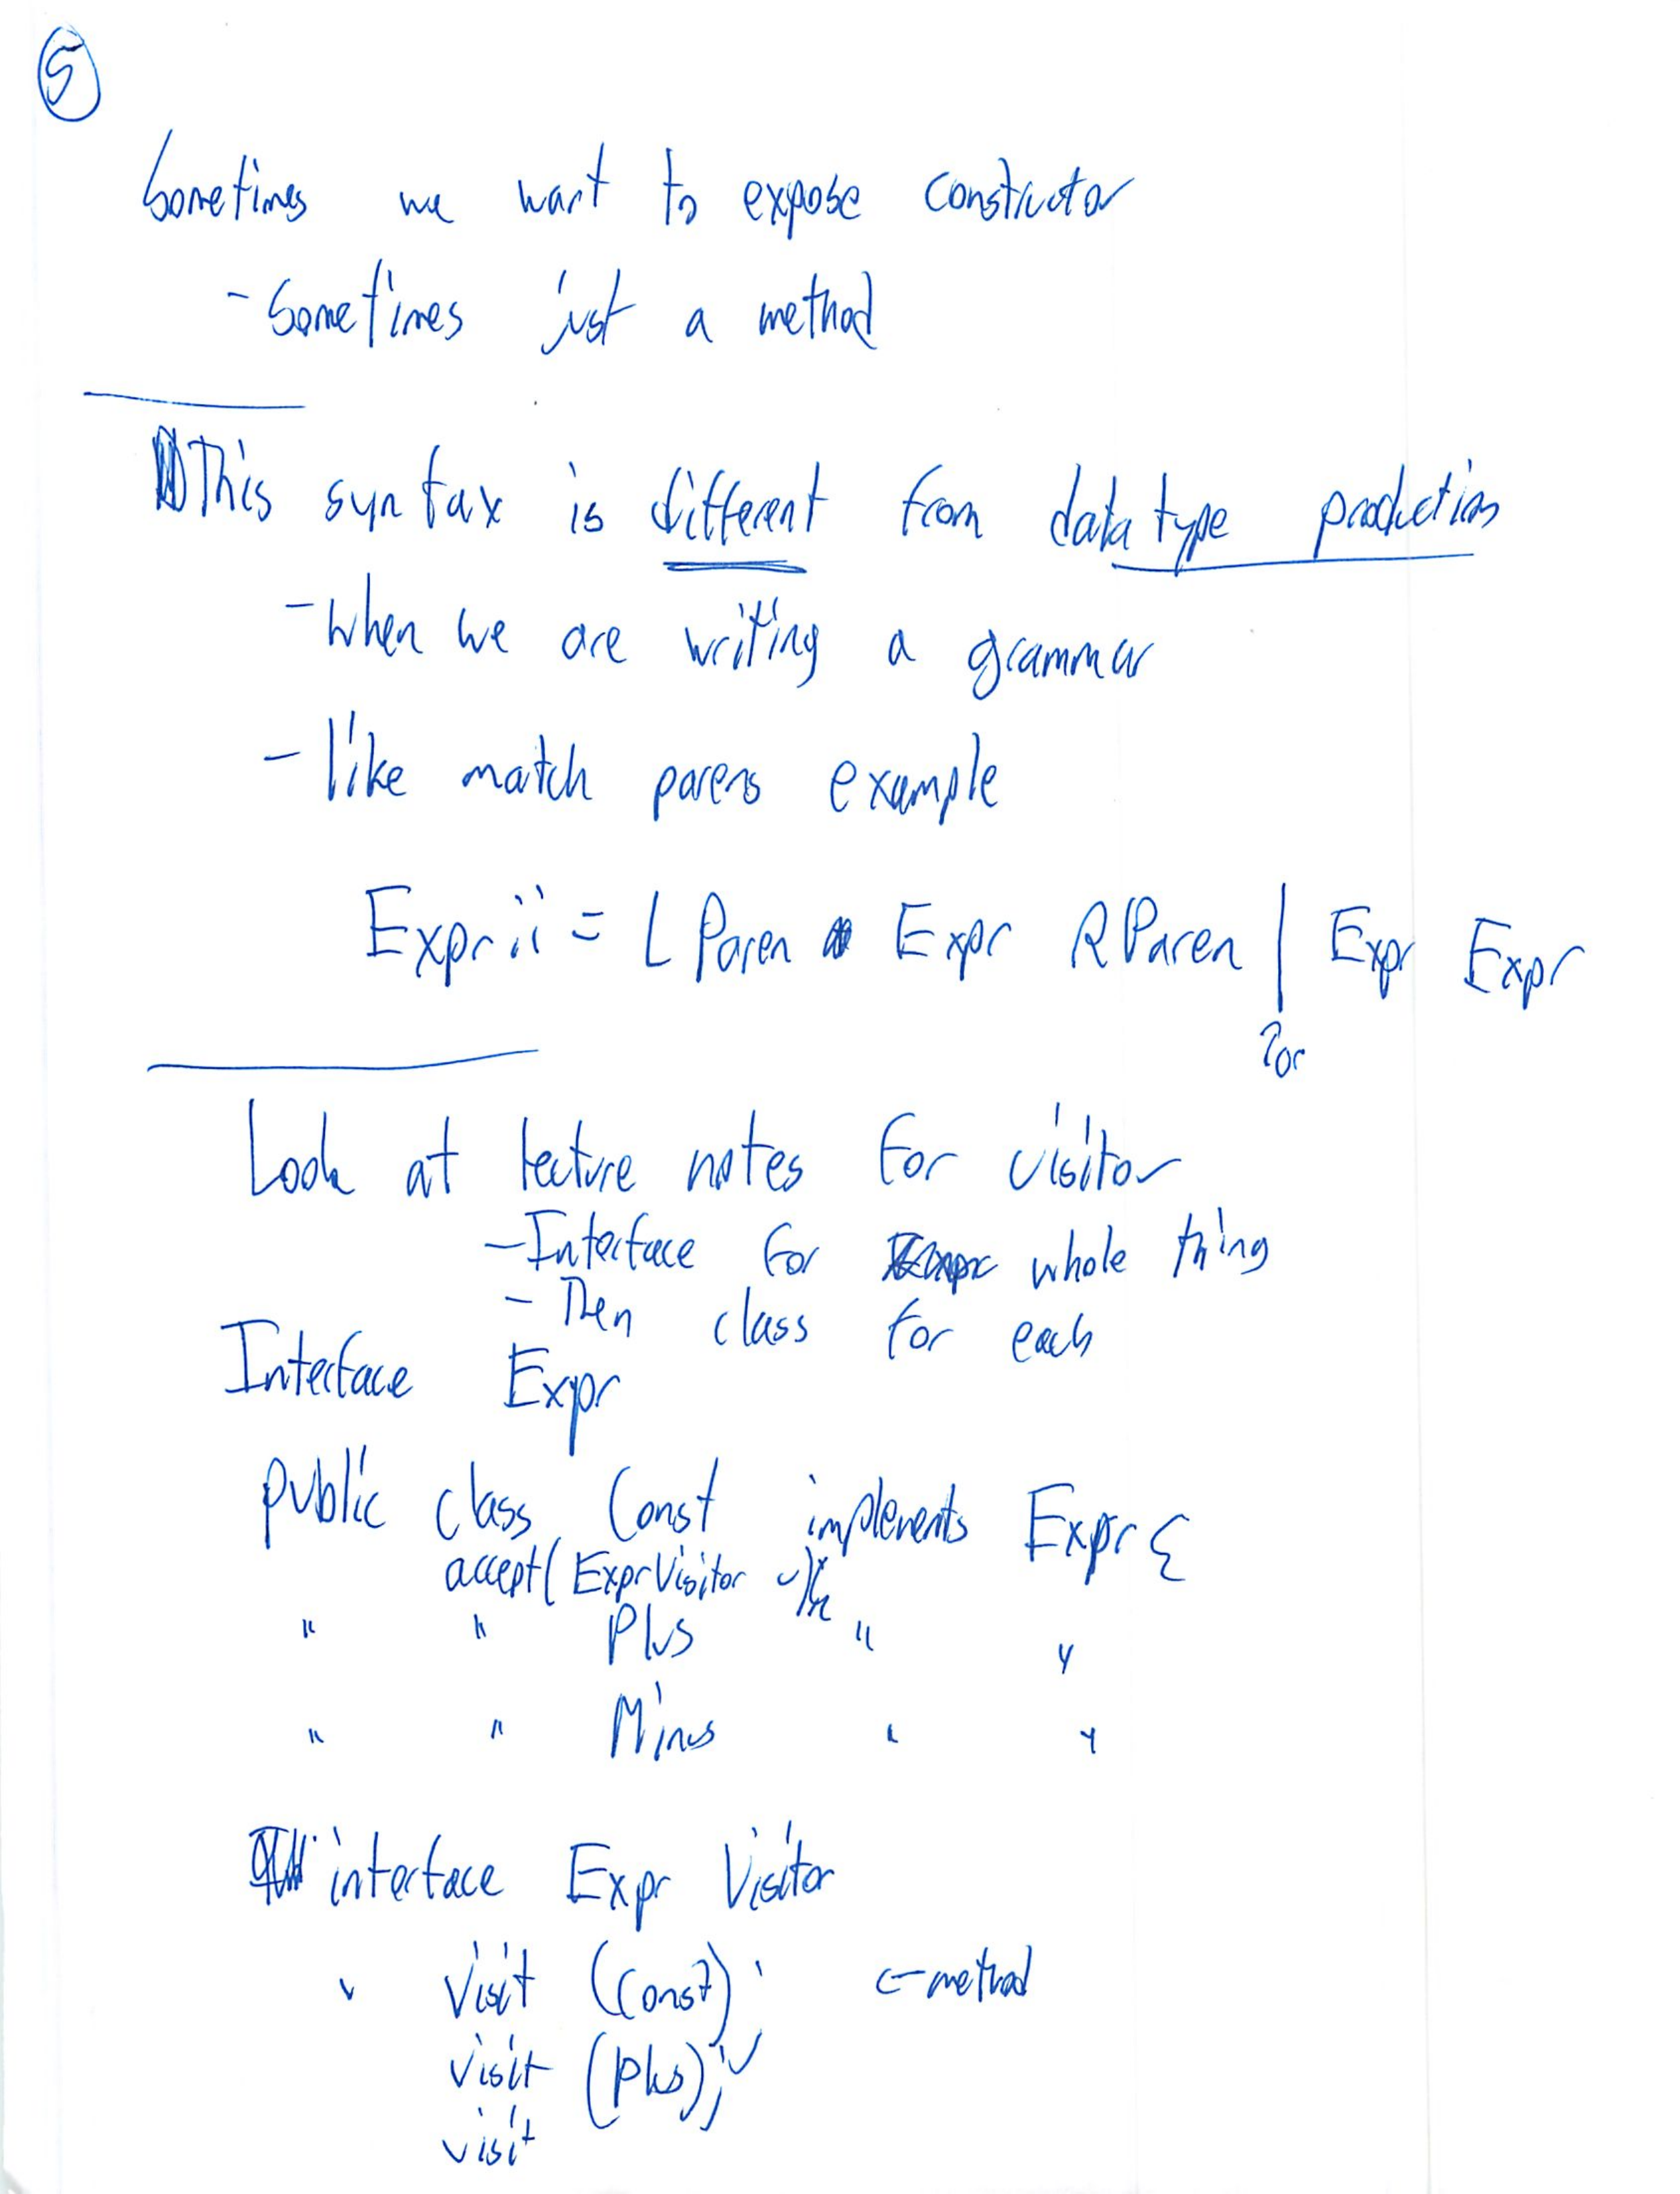 5
Sometimes we want to expose constructor
- Sometimes just a method
This syntax is different from data type production
- When we are writing a grammar
- like match parens example
Expr ::= LParen Expr RParen | Expr Expr
or
Look at lecture notes for visitor
- Interface for whole thing
- Then class for each
Interface Expr
public class Const implements Expr {
accept(ExprVisitor v)
" " Plus " "
" " Minus " "
interface Expr Visitor
visit (Const); ← method
visit (plus);
visit